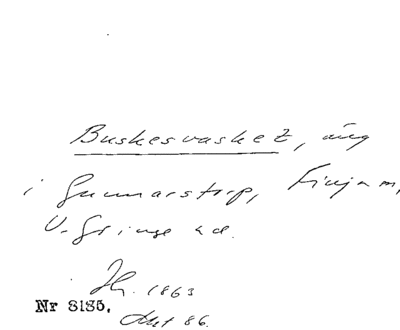 Buskesvasket, äng
i Gunnarstorp, Finja sn,
V. Göinge hd.
H. 1863
Nr 8185.
Akt 86.